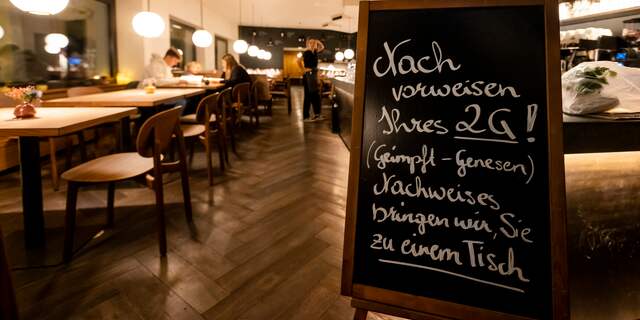 Nach
vorweisen
Ihres 2G!
(Geimpft - Genesen)
Nachweises
bringen wir, Sie
zu einem Tisch